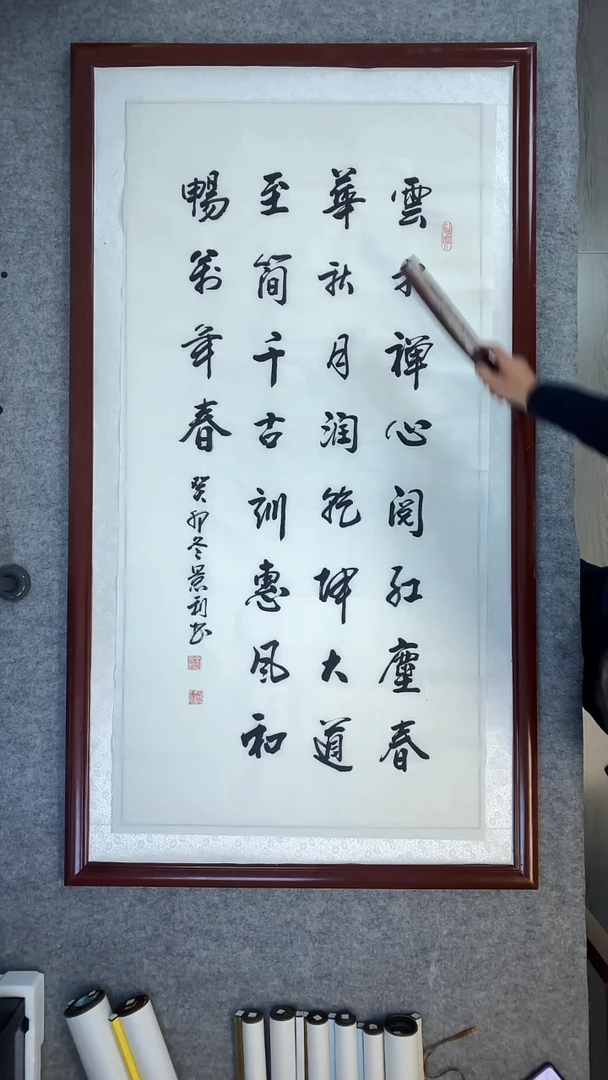 雲禅心阅红塵春
華秋月润乾坤大道
至简千古訓惠风和
暢萬年春
癸卯冬景利书